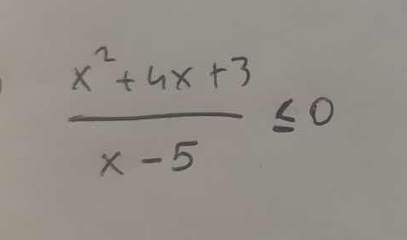 x²+4x+3
x-5
≤0